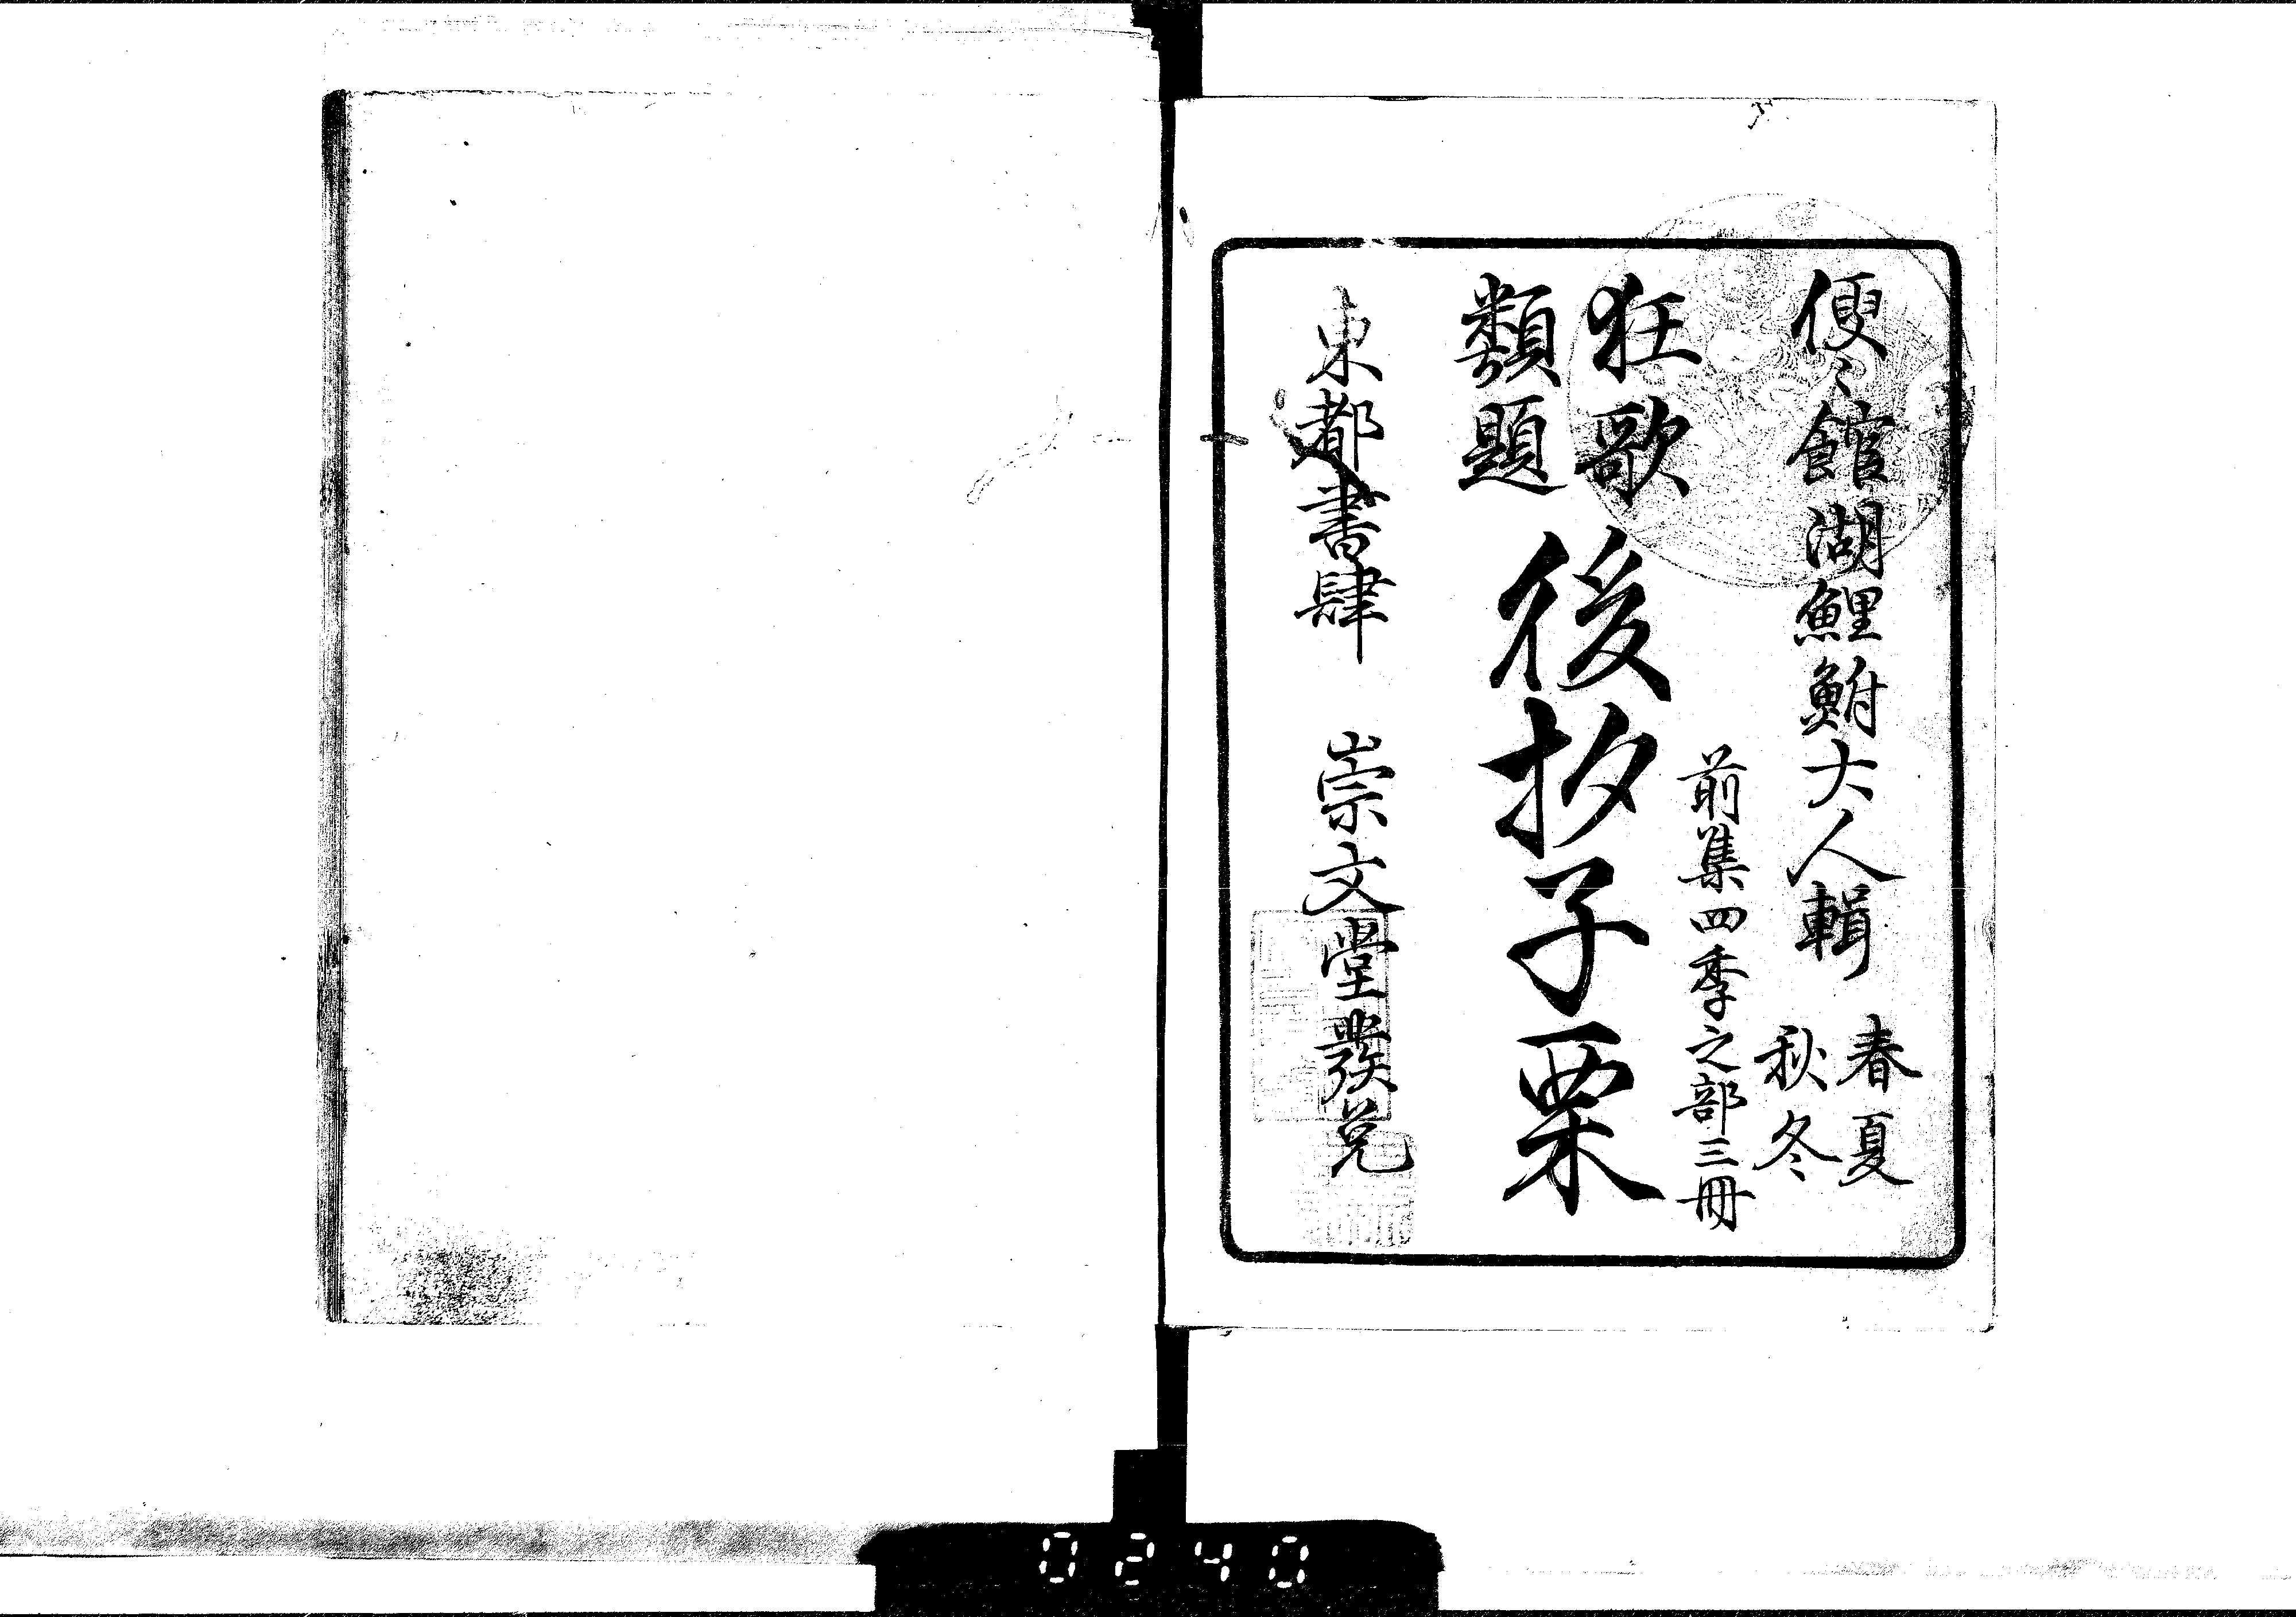 便〻館湖鯉鮒大人輯
春夏
秋冬
前集四季之部三冊
狂歌
類題
後杦子栗
東都書肆 崇文堂發兌
0240